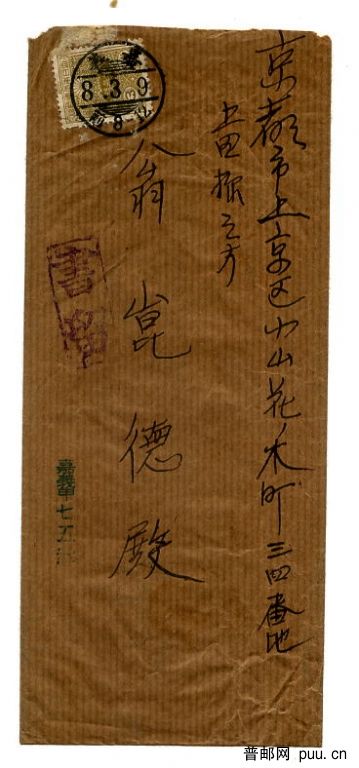 京都市上京区小山花ノ木町三四番地
上田振之方
翁崑德殿
書留
嘉義甲七五
8.3.9
普邮网 puu.cn